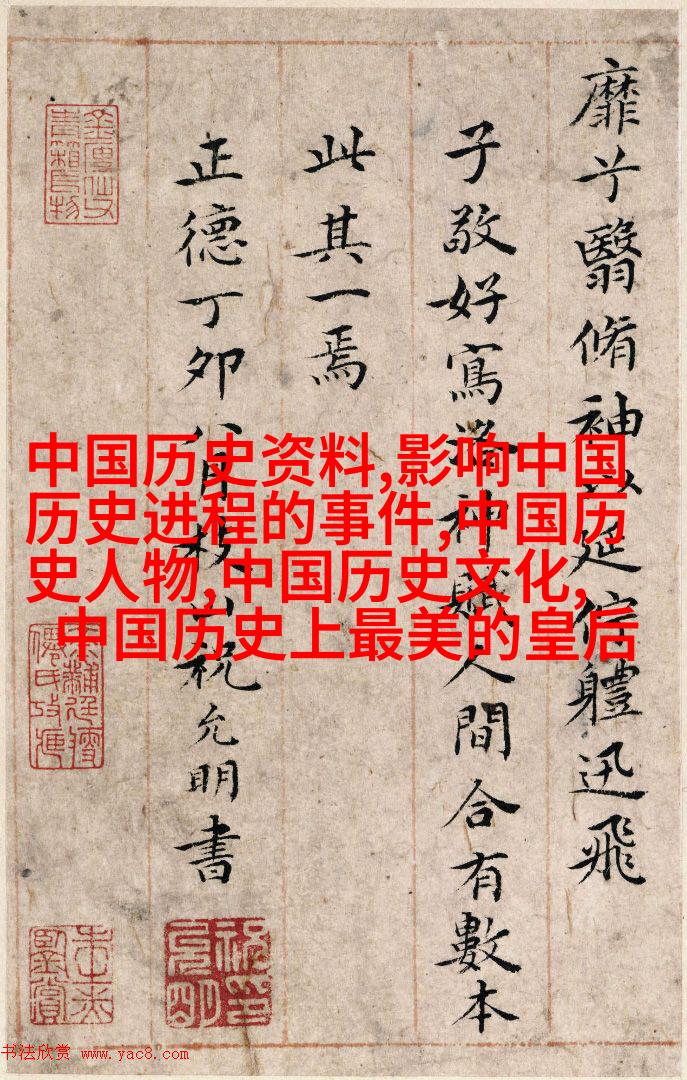 靡兮翳脩袖以延佇體迅飛
子敬好寫洛神賦人間合有數本
此其一焉
正德丁卯八月枝山祝允明書
中国历史资料,影响中国
历史进程的事件,中国历
史人物,中国历史文化,
中国历史上最美的皇后
书法欣赏 www.yac8.com